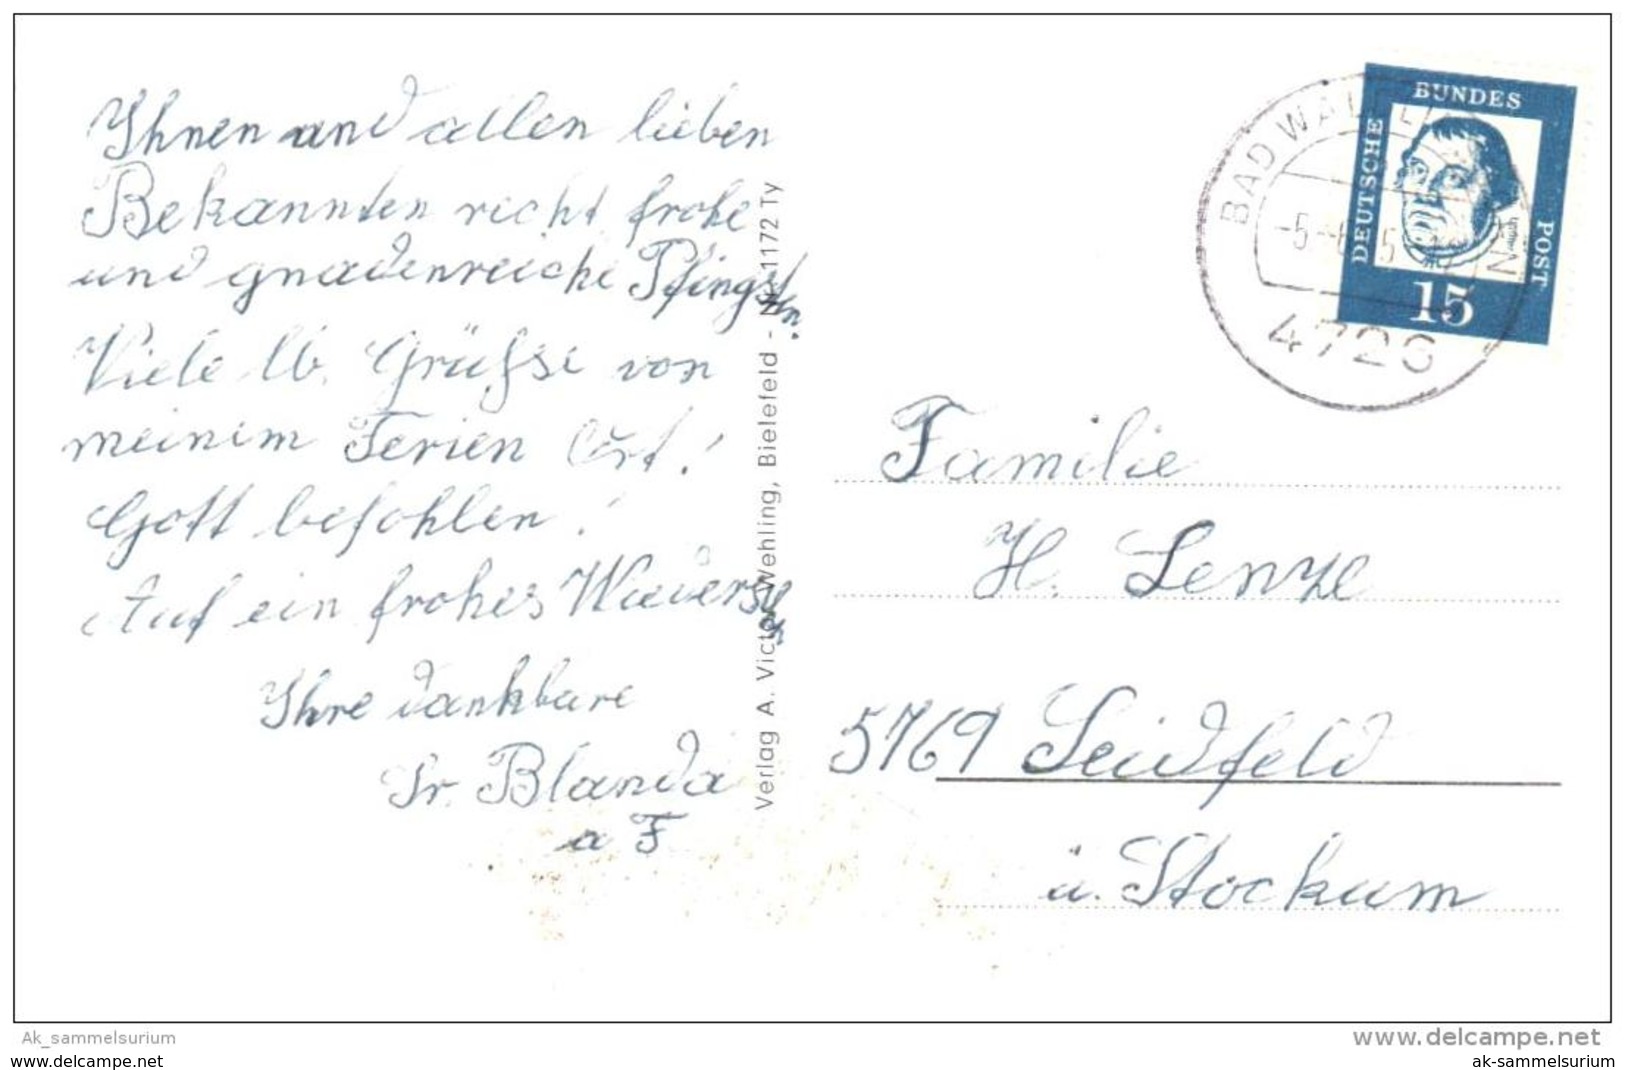 Ihnen und allen lieben
Bekannten recht frohe
und gnadenreiche Pfingsten.
Viele lb. Grüße von
meinem Ferien Ort!
Gott befohlen!
Auf ein frohes Wieders
Ihre dankbare
Sr. Blanda
a F
Verlag A. Victor Wehling, Bielefeld - Nr. 1172 Ty
BAD WAL
-5.-6.
4723
BUNDES
DEUTSCHE
POST
15
Familie
H. Lenze
5769 Seidfeld
ü. Stockum
Ak_sammelsurium
www.delcampe.net
www.delcampe.net
ak-sammelsurium